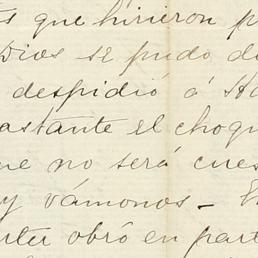 que hirieron
Dios se pudo
despidió á
astante el choqu
no será cues
y vámonos — 
rter obró en part